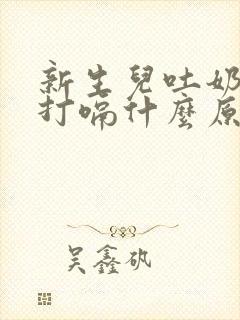 新生兒吐奶
打嗝什麼原
吴鑫矾